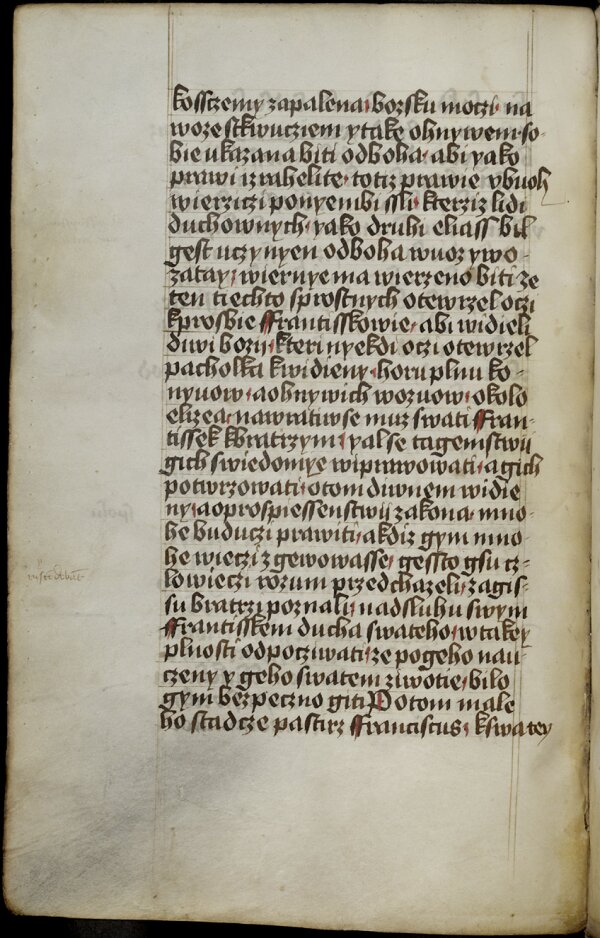 kossczemy zapalena borsku moczi na
woze stkwucziem ytake ohnywem so-
bie ukazana biti odboha abi yako
prawi izrahelite totiz prawie ybuoh
wierziczi ponyem bi issli kterziz lidi
duchownych yako druhi eliass bil
gest uczynyen odboha wuoz ywo-
zatay wiernye ma wierzeno biti ze
ten tiechto sprostnych otewrzel oczi
kprosbie ffrantisskowie abi widieli
diwi bozij kteri nyekdi oczi otewrzel
pacholka kwidieny horu plnu ko-
nyuow aohnywich wozuow okolo
elizea nawratiw se muz swati ffran-
tissek kbratrzym yal se tagemstwij
gich swiedomye wiprawowati a gich
potwrzowati otom diwnem widie
ny aoprospiessenstwij zakona mno-
he buduczi prawiti akdiz gym mno-
he wieczi zgewowasse gessto gsu cz-
lowieczi rozum przedchazeli zagis-
su bratrzi poznali nadsluhu swym
ffrantisskem ducha swateho wtakey
plnosti odpocziwati ze pogeho nau-
czeny y geho swatem ziwotie bilo
gym bezpeczno giti Potom male
ho stadcze pastirz ffranciscus kswatey